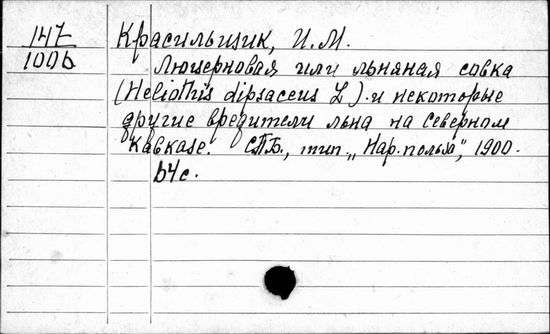 147
1006
Красильщик, И.М.
Люцерновая или льняная совка
(Heliothis dipsaceus L). и некоторые
другие вредители льна на Северном
Кавказе. СПБ., тип. „Нар. польза", 1900.
64 с.